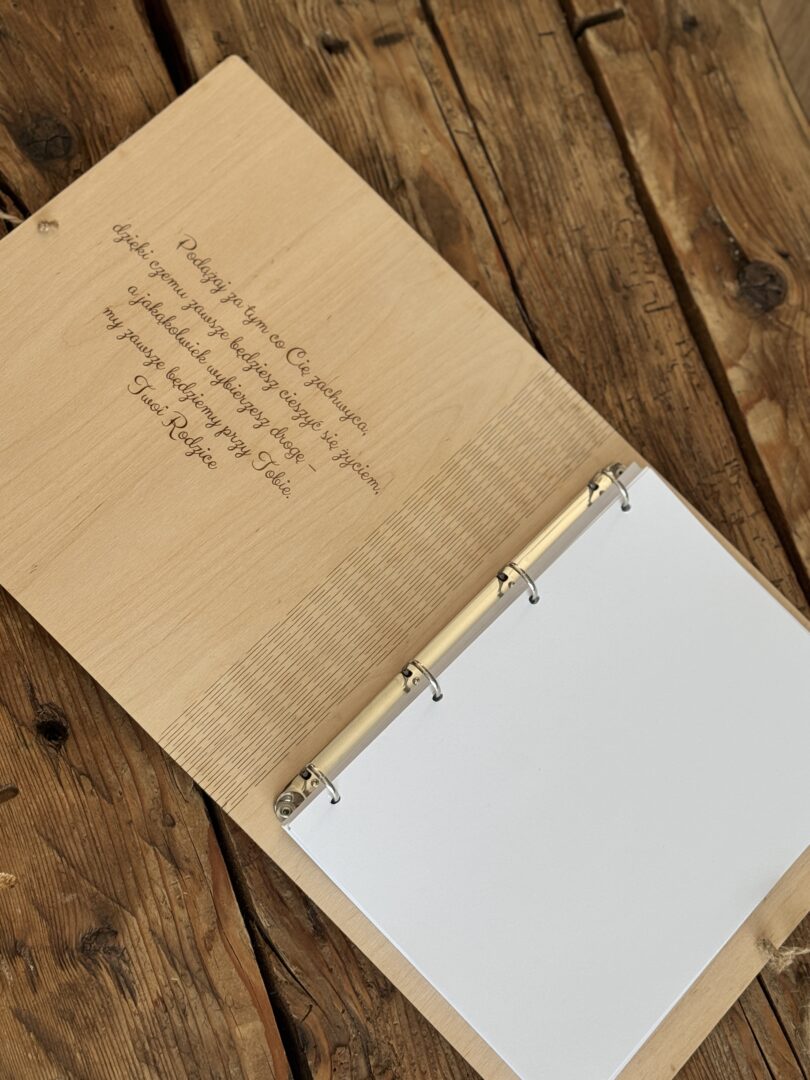 Podążaj za tym co Cię zachwyca,
dzięki czemu zawsze będziesz cieszyć się życiem,
a jakąkolwiek wybierzesz drogę –
my zawsze będziemy przy Tobie.
Twoi Rodzice